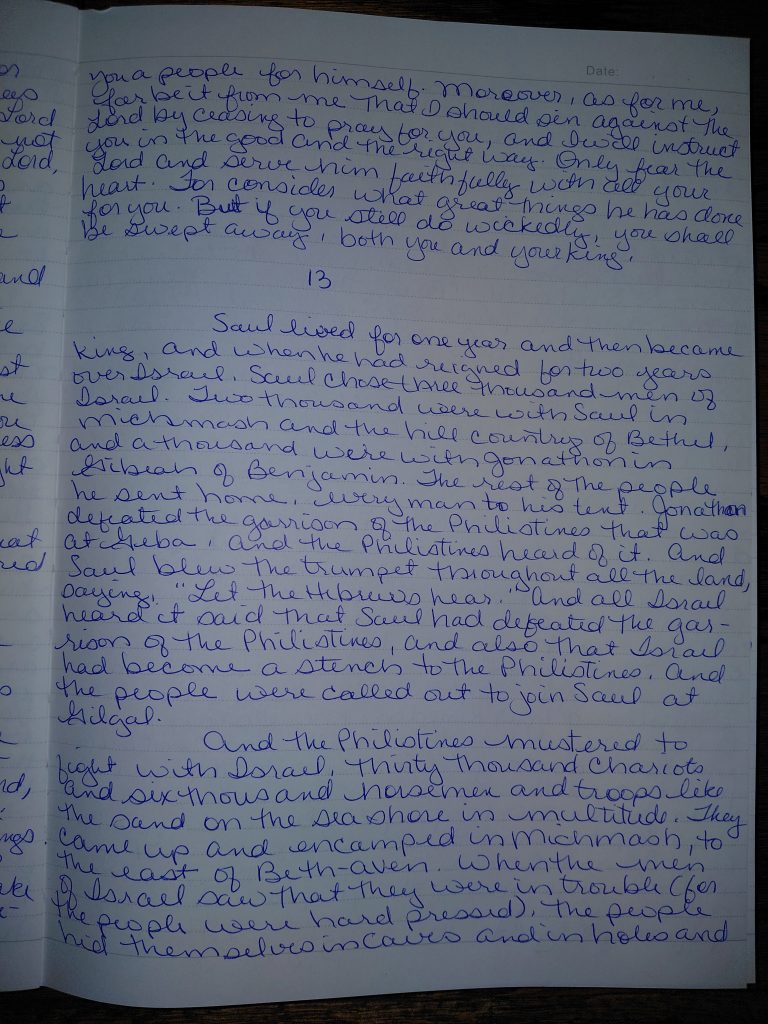 or
ays
Lord
not
Lord,
and
e
st
re
ou
ess
ght
eat
red
nd,
ngs.
ake
Date:
you a people for himself. Moreover, as for me,
far be it from me that I should sin against the
Lord by ceasing to pray for you, and I will instruct
you in the good and the right way. Only fear the
Lord and serve him faithfully with all your
heart. For consider what great things he has done
for you. But if you still do wickedly, you shall
be swept away, both you and your king.
13
Saul lived for one year and then became
king, and when he had reigned for two years
over Israel, Saul chose three thousand men of
Israel. Two thousand were with Saul in
Michmash and the hill country of Bethel,
and a thousand were with Jonathon in
Gibeah of Benjamin. The rest of the people
he sent home, every man to his tent. Jonathan
defeated the garrison of the Philistines that was
at Geba, and the Philistines heard of it. And
Saul blew the trumpet throughout all the land,
saying, "Let the Hebrews hear." And all Israel
heard it said that Saul had defeated the gar-
rison of the Philistines, and also that Israel
had become a stench to the Philistines. And
the people were called out to join Saul at
Gilgal.
And the Philistines mustered to
fight with Israel, thirty thousand chariots
and six thousand horsemen and troops like
the sand on the seashore in multitude. They
came up and encamped in Michmash, to
the east of Beth-aven. When the men
of Israel saw that they were in trouble (for
the people were hard pressed), the people
hid themselves in caves and in holes and